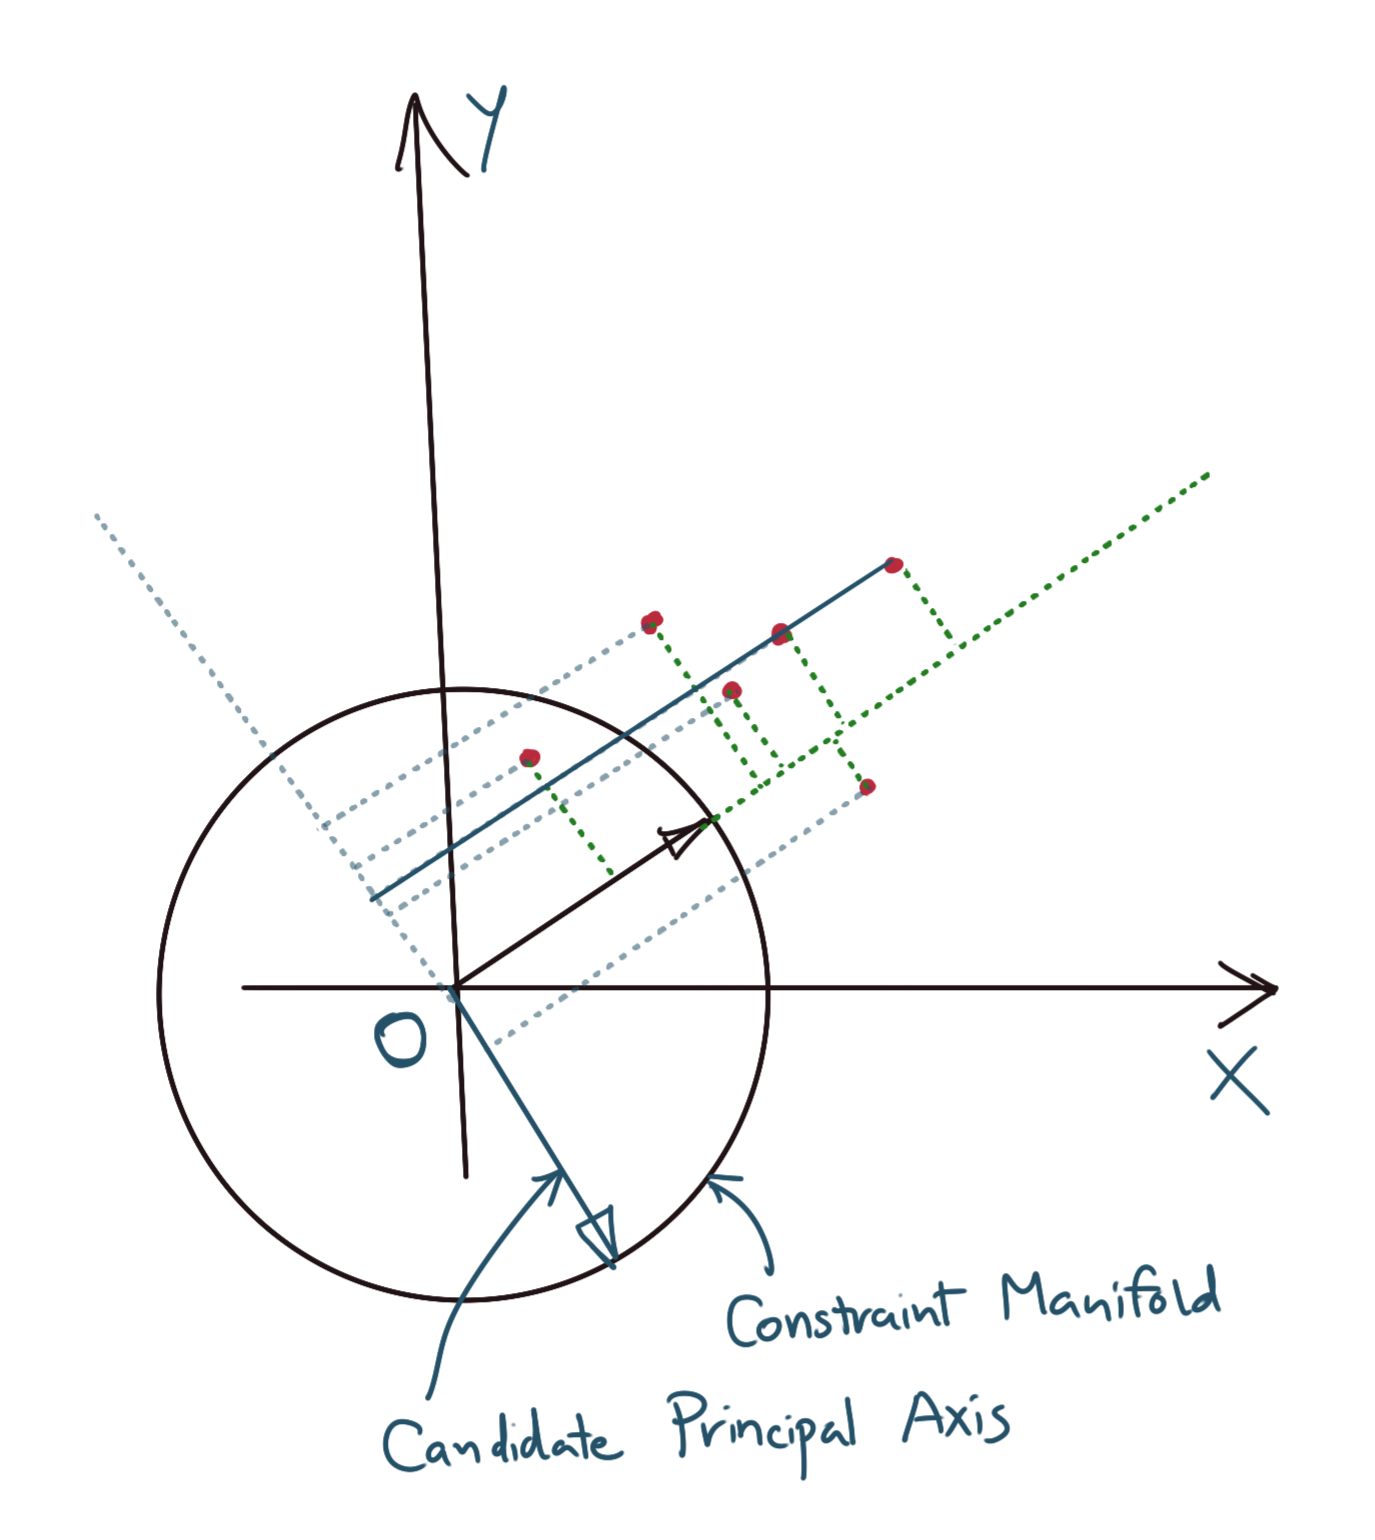 Y
O
X
Constraint Manifold
Candidate Principal Axis